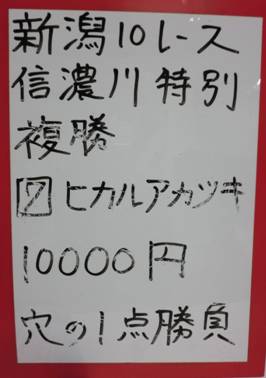 新潟10レース
信濃川特別
複勝
7 ヒカルアカツキ
10000円
穴の1点勝負